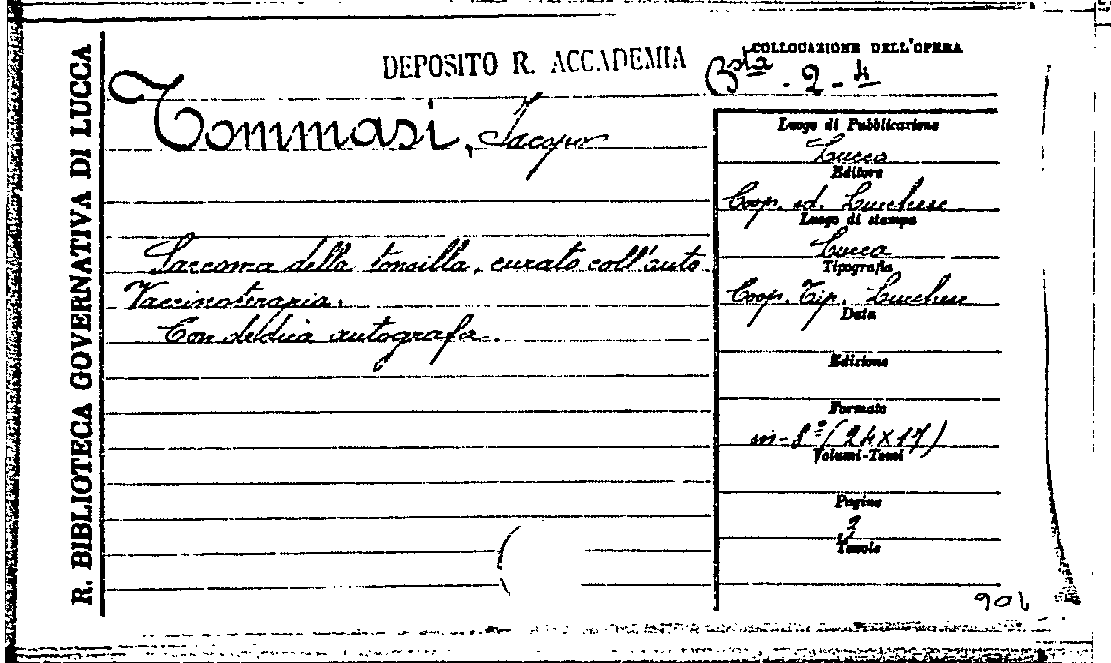 R. BIBLIOTECA GOVERNATIVA DI LUCCA
DEPOSITO R. ACCADEMIA
COLLOCAZIONE DELL'OPERA
Bsta - 2 - 4
Tommasi, Jacopo
Sarcoma della tonsilla, curato coll'auto
Vaccinoterapia.
Con dedica autografa.
Luogo di Pubblicazione
Lucca
Editore
Coop. ed. Lucchese
Luogo di stampa
Lucca
Tipografia
Coop. Tip. Lucchese
Data
Edizione
Formato
in-8º (24x17)
Volumi-Tomi
Pagine
Tavole